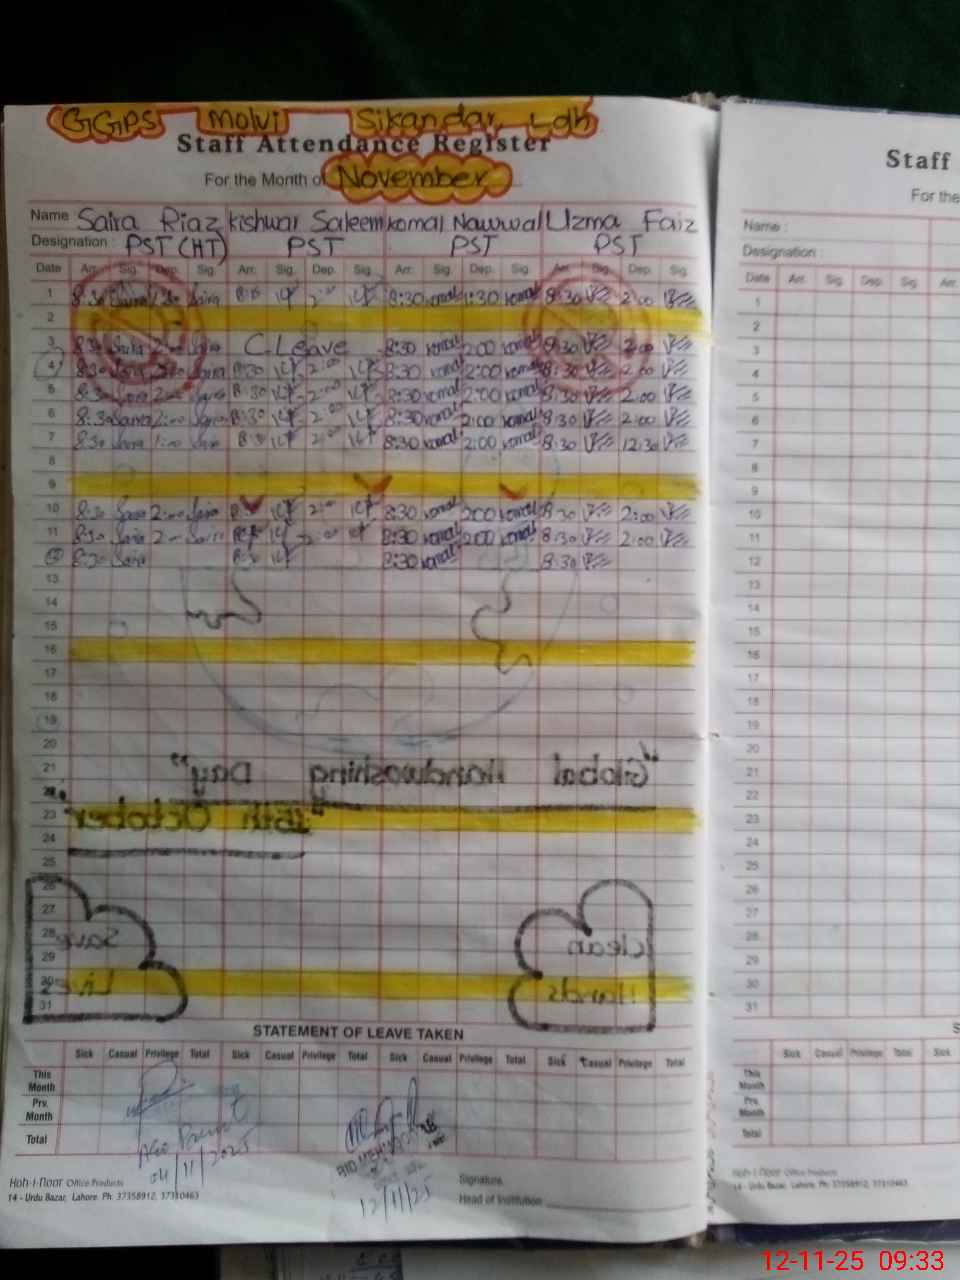 GGPS Molvi Sikandar Ldh
Staff Attendance Register
For the Month of November
Name Saira Riaz Kishwar Saleem Komal Nawwal Uzma Faiz
Designation : PST (HT) PST PST PST
Date Arr. Sig. Dep. Sig. Arr. Sig. Dep. Sig. Arr. Sig. Dep. Sig. Arr. Sig. Dep. Sig.
1 8:30 Saira Saira 8:30 komal 1:30 komal 8:30 2:00
2
3 8:30 Saira 2:00 Saira C.Leave 8:30 komal 2:00 komal 8:30 2:00
4 8:30 Saira 2:00 Saira 8:30 2:00 8:30 komal 2:00 komal 8:30 2:00
5 8:30 Saira 2:00 Saira 8:30 2:00 8:30 komal 2:00 komal 8:30 2:00
6 8:30 Saira 2:00 Saira 8:30 2:00 8:30 komal 2:00 komal 8:30 2:00
7 8:30 Saira 1:00 Saira 8:30 2:00 8:30 komal 2:00 komal 8:30 12:30
8
9
10 8:30 Saira 2:00 Saira 2:00 8:30 komal 2:00 komal 8:30 2:00
11 8:30 Saira 2:00 Saira 2:00 8:30 komal 2:00 komal 8:30 2:00
12 8:30 Saira 8:30 8:30 komal 8:30
13
14
15
16
17
18
19
20
21
22
23
24
25
26
27
28
29
30
31
"Global Handwashing Day"
"15th October"
Save Lives
Clean Hands
STATEMENT OF LEAVE TAKEN
Sick Casual Privilege Total Sick Casual Privilege Total Sick Casual Privilege Total Sick Casual Privilege Total
This Month
Prv. Month
Total
04/11/2025
12/11/25
Signature
Head of Institution
Hoh-I-Noor Office Products
14 - Urdu Bazar, Lahore. Ph: 37358912, 37310463
Staff
For the
Name :
Designation :
Date Arr. Sig. Dep. Sig. Arr.
1
2
3
4
5
6
7
8
9
10
11
12
13
14
15
16
17
18
19
20
21
22
23
24
25
26
27
28
29
30
31
S
Sick Casual Privilege Total Sick
This Month
Prv. Month
Total
Hoh-I-Noor Office Products
14 - Urdu Bazar, Lahore. Ph: 37358912, 37310463
12-11-25 09:33